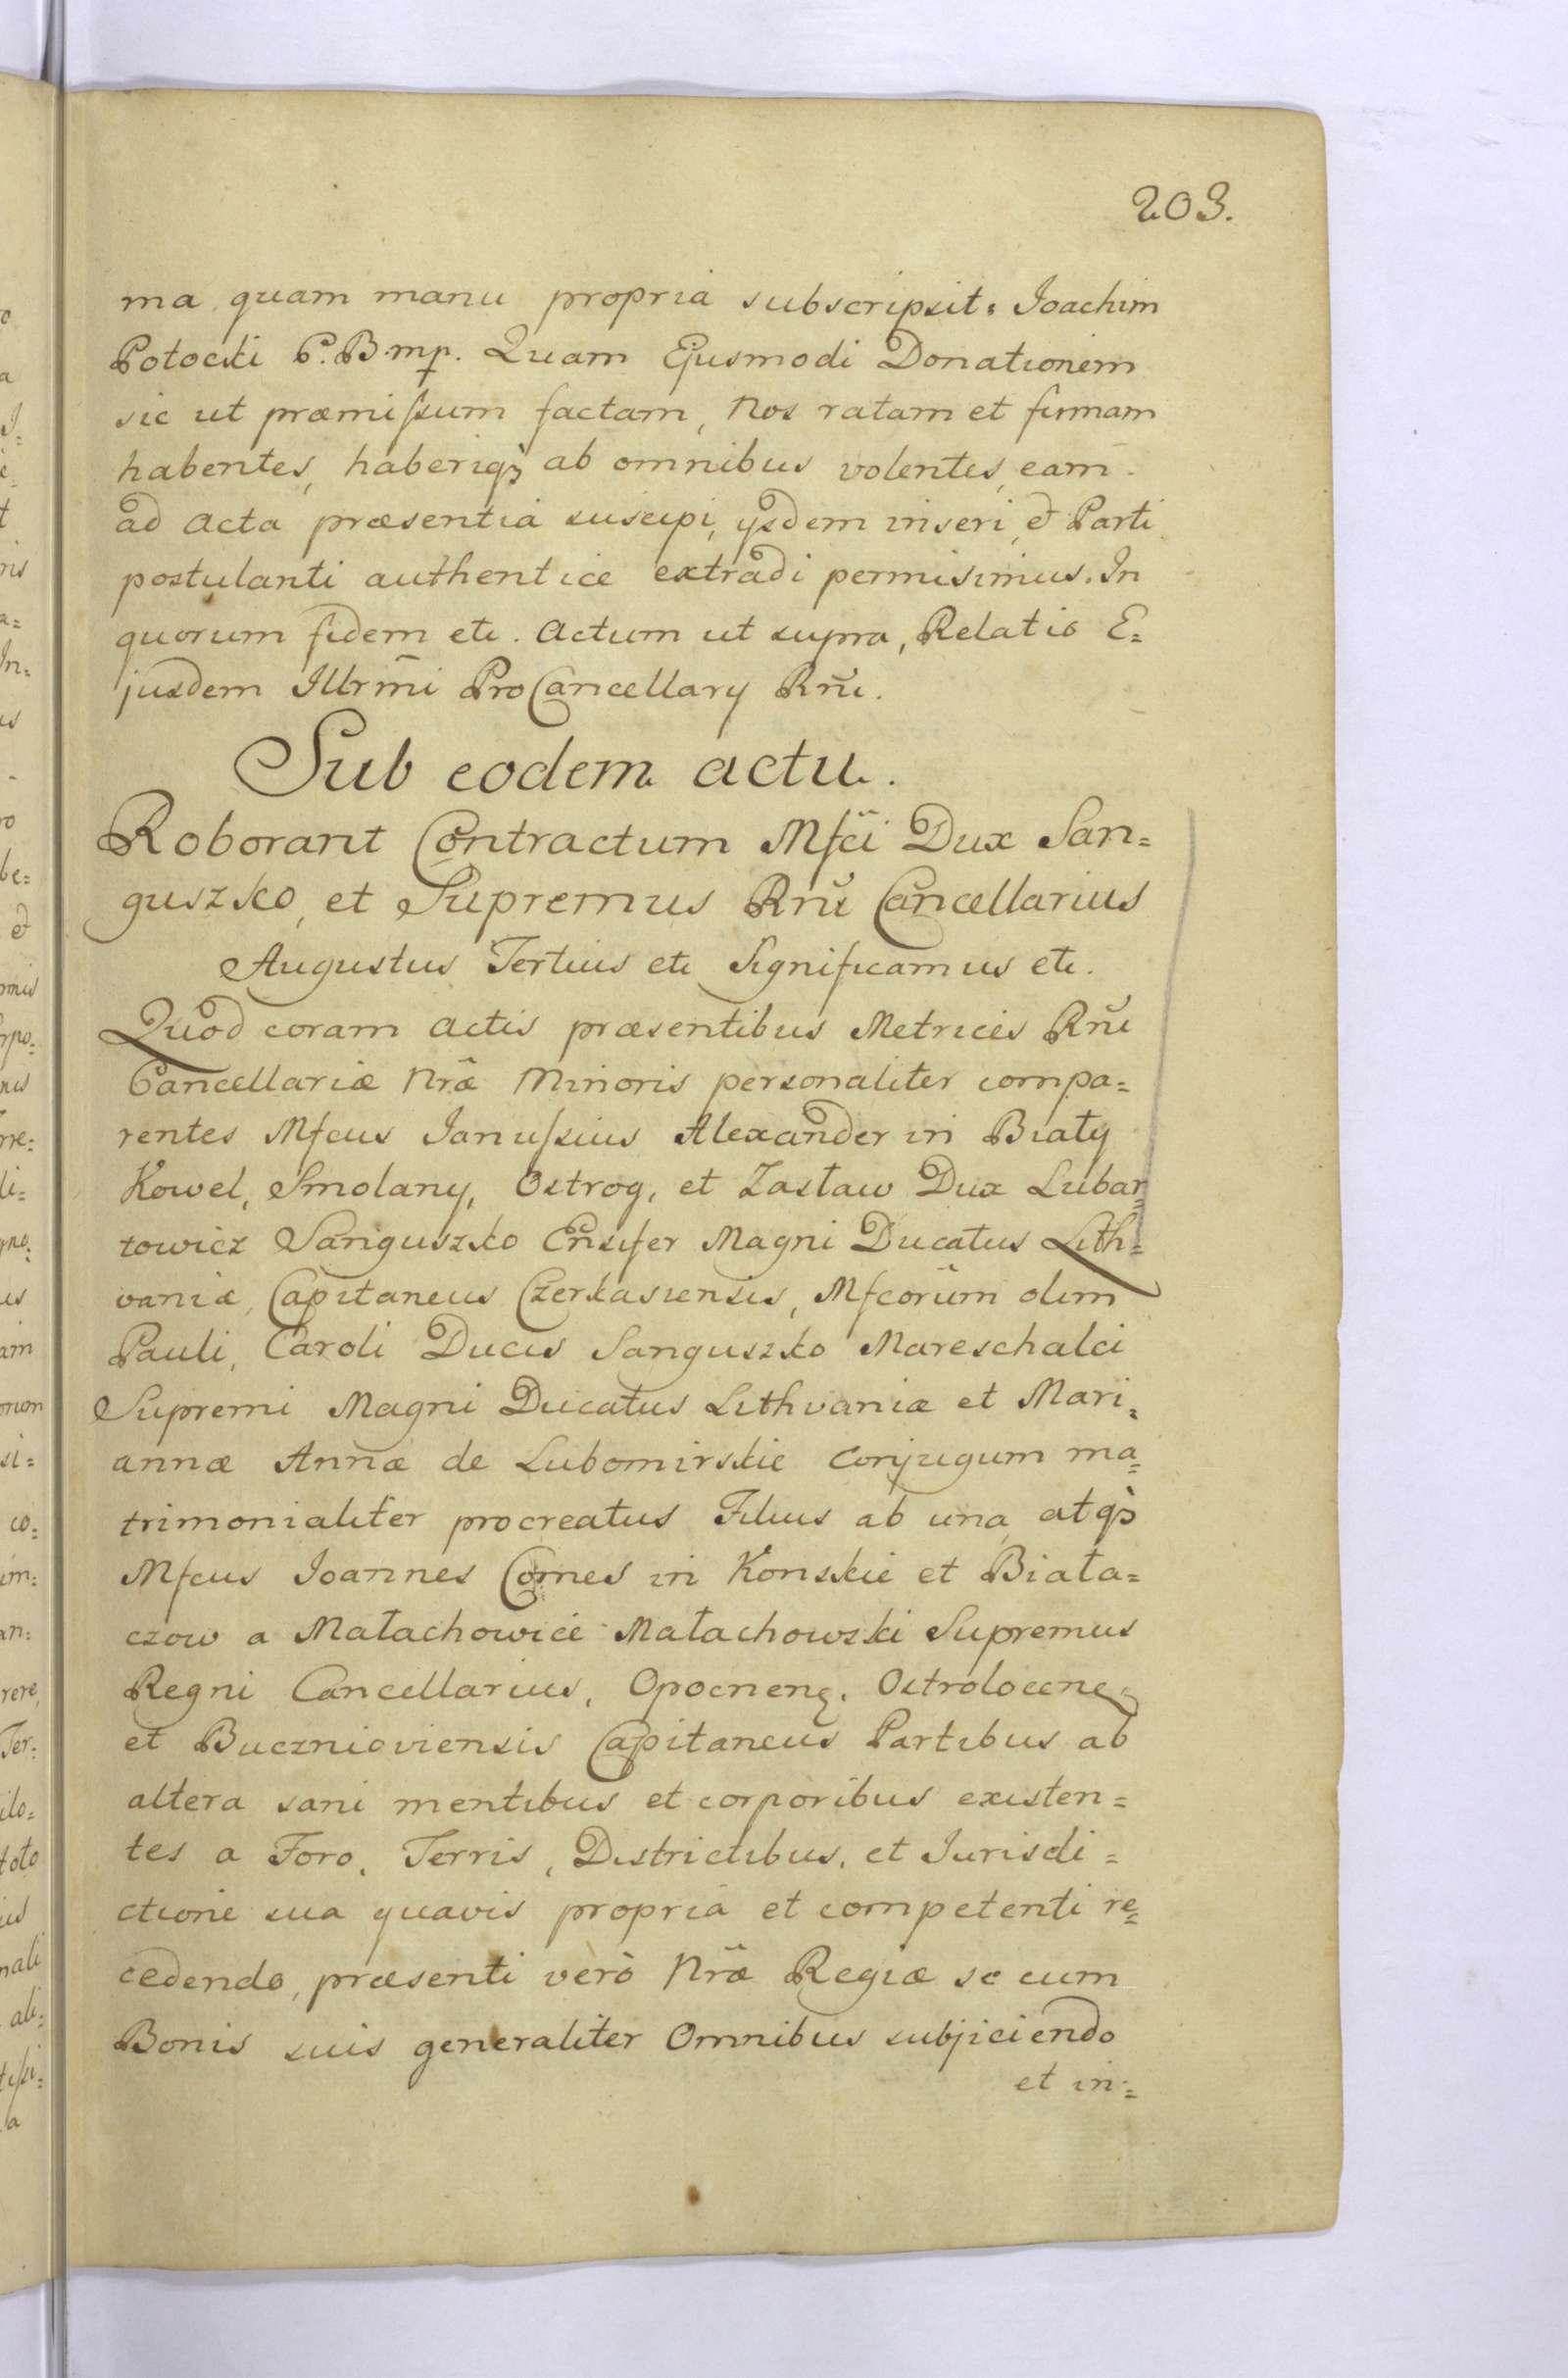 203.
ma quam manu propria subscripsit: Joachim
Potocki P. B. mp. Quam Ejusmodi Donationem
sic ut præmiſsum factam, Nos ratam et firmam
habentes, haberiqꝫ ab omnibus volentes, eam
ad acta præsentia suscipi, ijsdem inseri, et Parti
postulanti authentice extradi permisimus. In
quorum fidem etc. Actum ut supra, Relatio E=
jusdem Illrm̃i ProCancellarij Rñi.
Sub eodem actu.
Roborant Contractum Mfci Dux San=
guszko, et Supremus Rñi Cancellarius
Augustus Tertius etc Significamus etc.
Quod coram actis præsentibus Metrices Rñi
Cancellariæ Nræ Minoris personaliter compa=
rentes Mfcus Januſsius Alexander in Biały
Kowel, Smolany, Ostrog, et Zasław Dux Lubar=
towicz Sanguszko Ensifer Magni Ducatus Lith=
vaniæ, Capitaneus Czerkasiensis, Mfcorum olim
Pauli, Caroli Ducis Sanguszko Mareschalci
Supremi Magni Ducatus Lithvaniæ et Mari=
annæ Annæ de Lubomirskie Conjugum ma=
trimonialiter procreatus Filius ab una, atqꝫ
Mfcus Joannes Comes in Konskie et Biała=
czow a Małachowice Małachowski Supremus
Regni Cancellarius, Opocnenꝫ. Ostrolocenꝫ
et Buczniowiensis Capitaneus Partibus ab
altera sani mentibus et corporibus existen=
tes a Foro, Terris, Districtibus, et Jurisdi=
ctione sua quavis propria et competenti re=
cedendo, præsenti verò Nræ Regiæ se cum
Bonis suis generaliter Omnibus subjiciendo
et in=